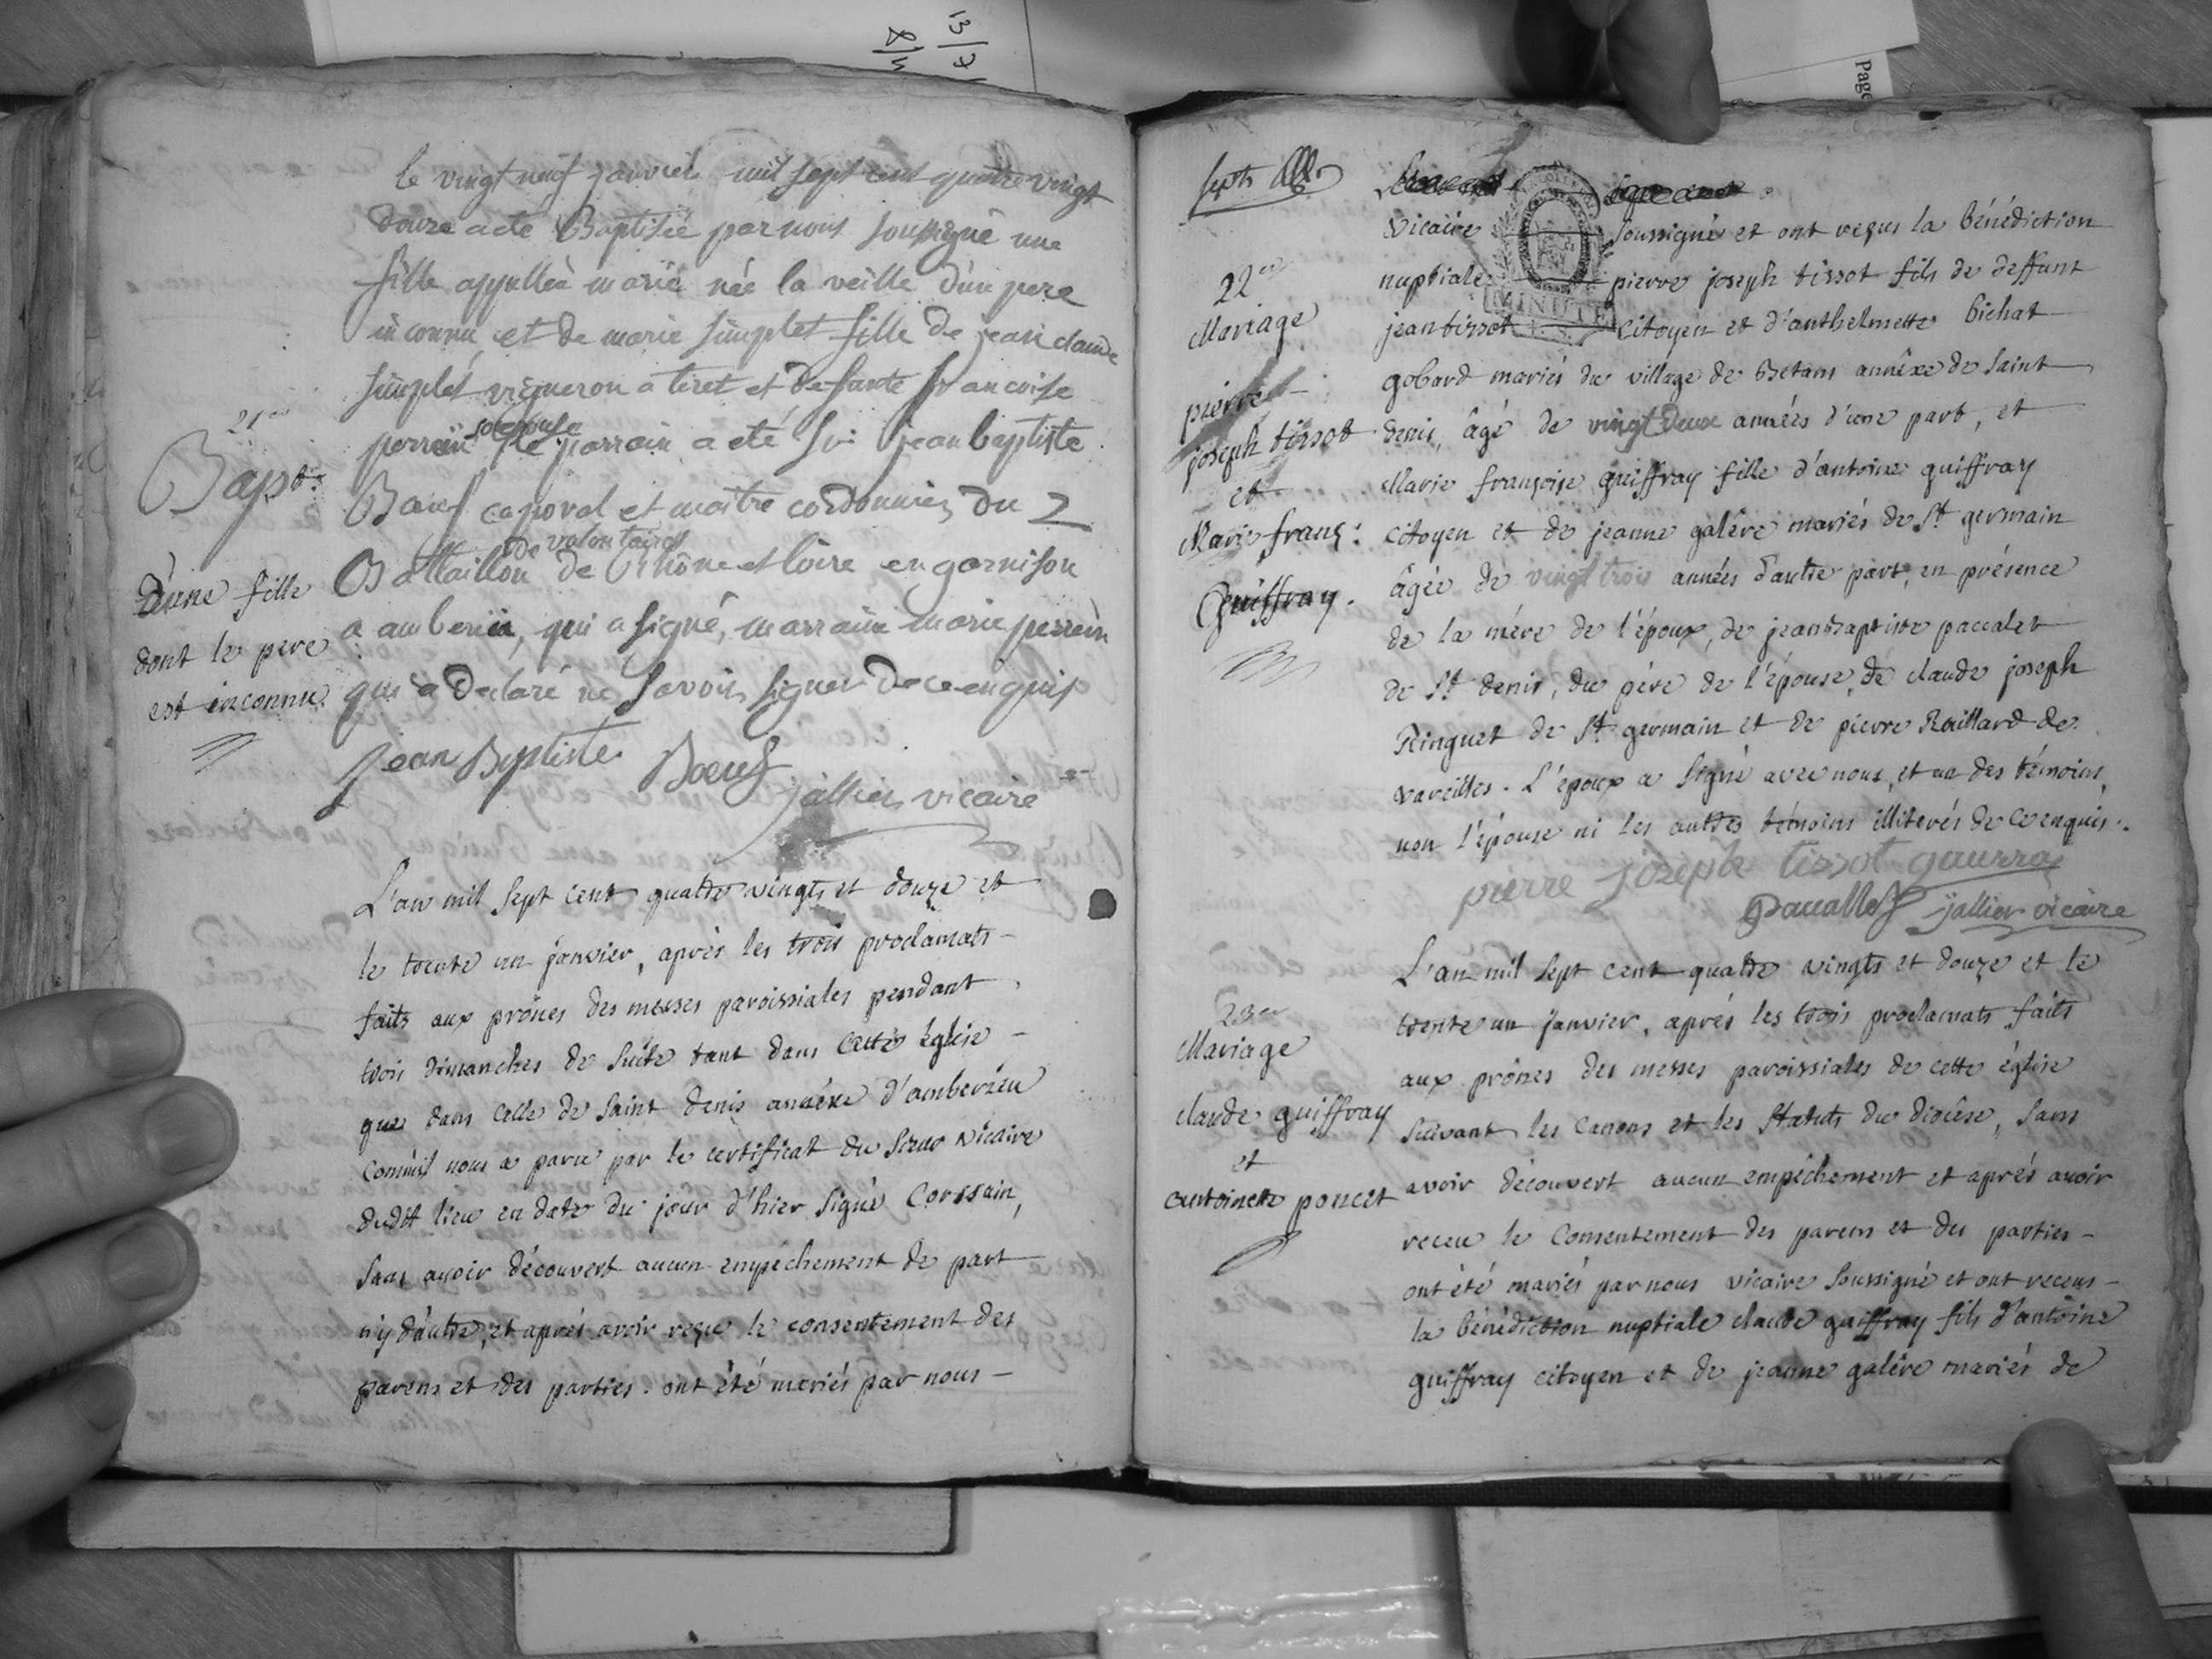 le vingt neuf janvier mil sept cent quatre vingt
douze a eté Baptisée par nous soussigné une
fille appellée marie née la veille d'un pere
inconnu et de marie simplet fille de jean claude
simplet vigneron a tiret et de defunte francoise
perrein son epouse le parrain a eté sr jean baptiste
21eme
Bapt:
d'une fille
dont le pere
est inconnu
Bœuf caporal et maitre cordonnier du 2
Battaillon de volontaires de Rhône et loire en garnison
a amberieu, qui a signé, marraine marie perrein
qui a declaré ne savoir signer de ce enquis
jean Baptiste Boeuf
jallier vicaire
L'an mil sept cent quatre vingts et douze et
le trente un janvier, après les trois proclamats
faits aux prônes des messes paroissiales pendant
trois dimanches de suite tant dans cette église
que dans celle de saint denis annéxe d'amberieu
comm'il nous a paru par le certificat du sieur vicaire
dudit lieu en date du jour d'hier signé Corssain,
sans avoir découvert aucun empéchement de part
n'y d'autre, et après avoir reçu le consentement des
parens et des parties. ont été mariés par nous
sept
22em
Mariage
pierre
joseph tissot
et
Marie franç:
Guiffray.
vicaire soussigné et ont reçus la bénédiction
nuptiale pierre joseph tissot fils de deffunt
MINUTE
jean tissot citoyen et d'anthelmette bichat
gobard mariés du village de Betans annêxe de saint
denis, âgé de vingt deux années d'une part, et
Marie françoise guiffray fille d'antoine guiffray
citoyen et de jeanne galère mariés de St germain
âgée de vingt trois années d'autre part, en présence
de la mére de l'époux, de jean baptiste paccalet
de St denis, du pére de l'épouse, de claude joseph
Ringuet de St germain et de pierre Raillard de
vareilles. L'époux a signé avec nous, et un des témoins,
non l'épouse ni les autres témoins illiterés de ce enquis.
pierre joseph tissot gaurra
Paccallet jallier vicaire
23em
Mariage
claude guiffray
et
antoinette poncet
L'an mil sept cent quatre vingts et douze et le
trente un janvier, aprés les trois proclamats faits
aux prônes des messes paroissiales de cette église
suivant les canons et les statuts du diocèse, sans
avoir découvert aucun empéchement et aprés avoir
receu le consentement des parens et des parties
ont été mariés par nous vicaire soussigné et ont receus
la bénédiction nuptiale claude guiffray fils d'antoine
guiffray citoyen et de jeanne galére mariés de
Page